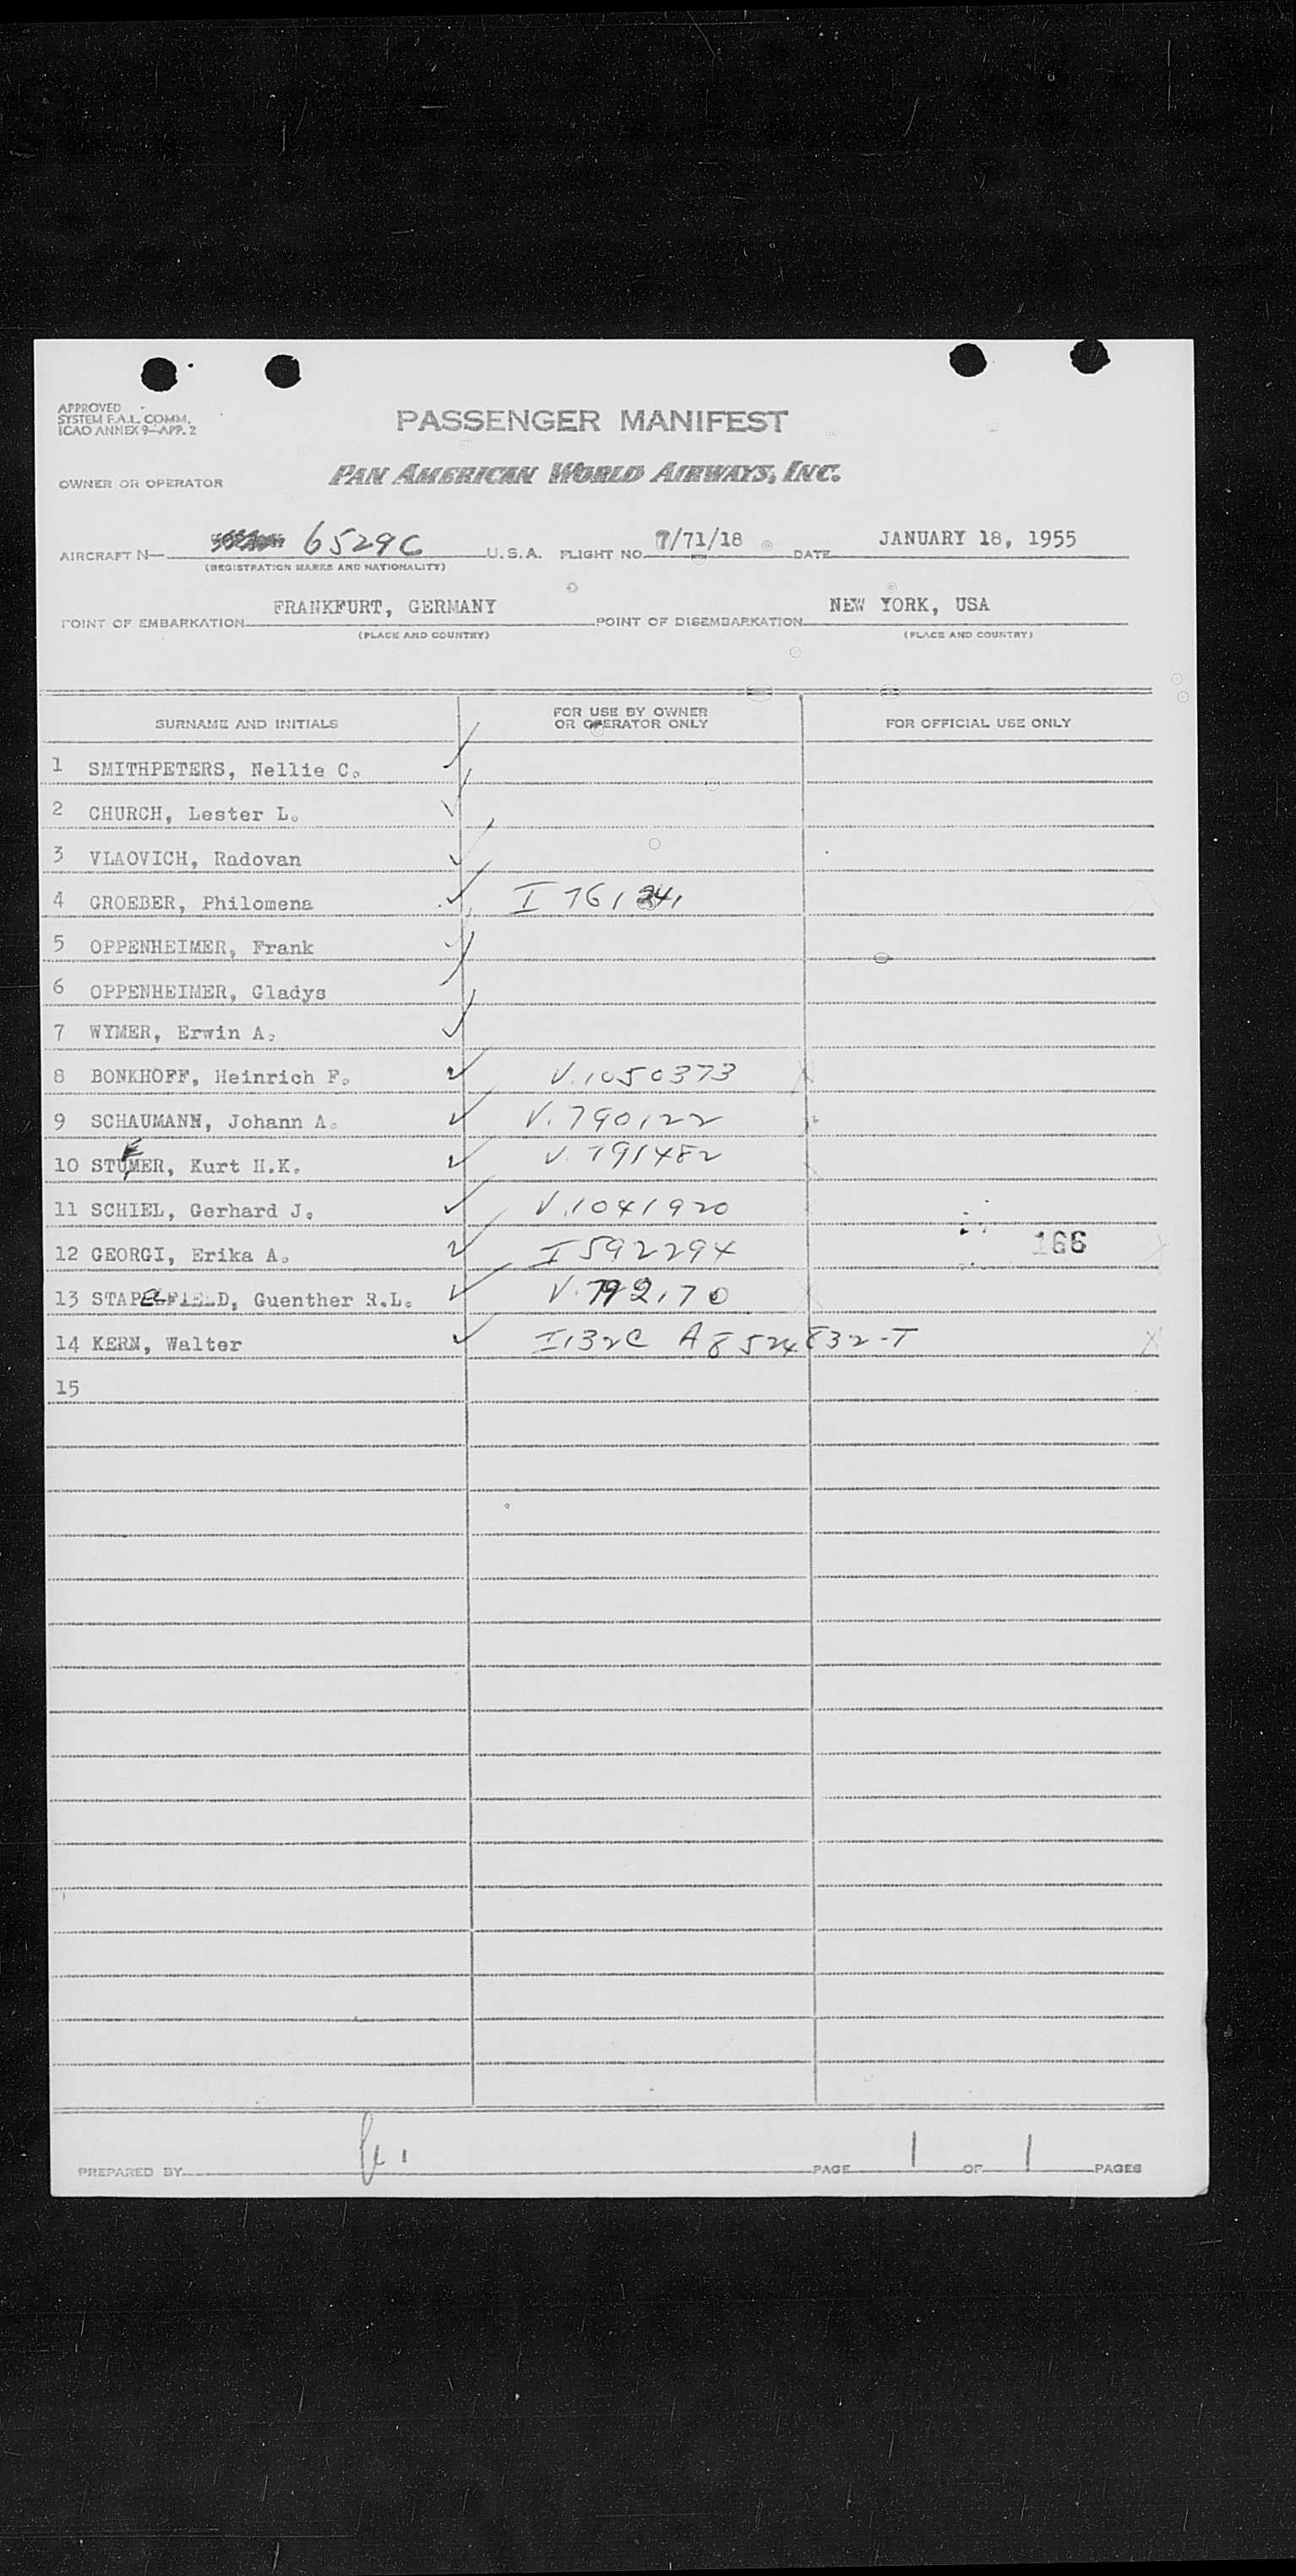 APPROVED
SYSTEM F.A.L. COMM.
ICAO ANNEX 9—APP. 2
PASSENGER MANIFEST
OWNER OR OPERATOR PAN AMERICAN WORLD AIRWAYS, INC.
AIRCRAFT N— 6529C U.S.A. FLIGHT NO. 7/71/18 DATE JANUARY 18, 1955
(REGISTRATION MARKS AND NATIONALITY)
POINT OF EMBARKATION FRANKFURT, GERMANY POINT OF DISEMBARKATION NEW YORK, USA
(PLACE AND COUNTRY) (PLACE AND COUNTRY)
SURNAME AND INITIALS FOR USE BY OWNER OR OPERATOR ONLY FOR OFFICIAL USE ONLY
1 SMITHPETERS, Nellie C.
2 CHURCH, Lester L.
3 VLAOVICH, Radovan
4 GROEBER, Philomena I
5 OPPENHEIMER, Frank
6 OPPENHEIMER, Gladys
7 WYMER, Erwin A.
8 BONKHOFF, Heinrich F. V.1050373
9 SCHAUMANN, Johann A. V.790122
10 STUEMER, Kurt H.K. V.791482
11 SCHIEL, Gerhard J. V.1041920
12 GEORGI, Erika A. I592294 166
13 Guenther R.L. V.792170
14 KERN, Walter I132C A8524832-T
15
PREPARED BY PAGE 1 OF 1 PAGES